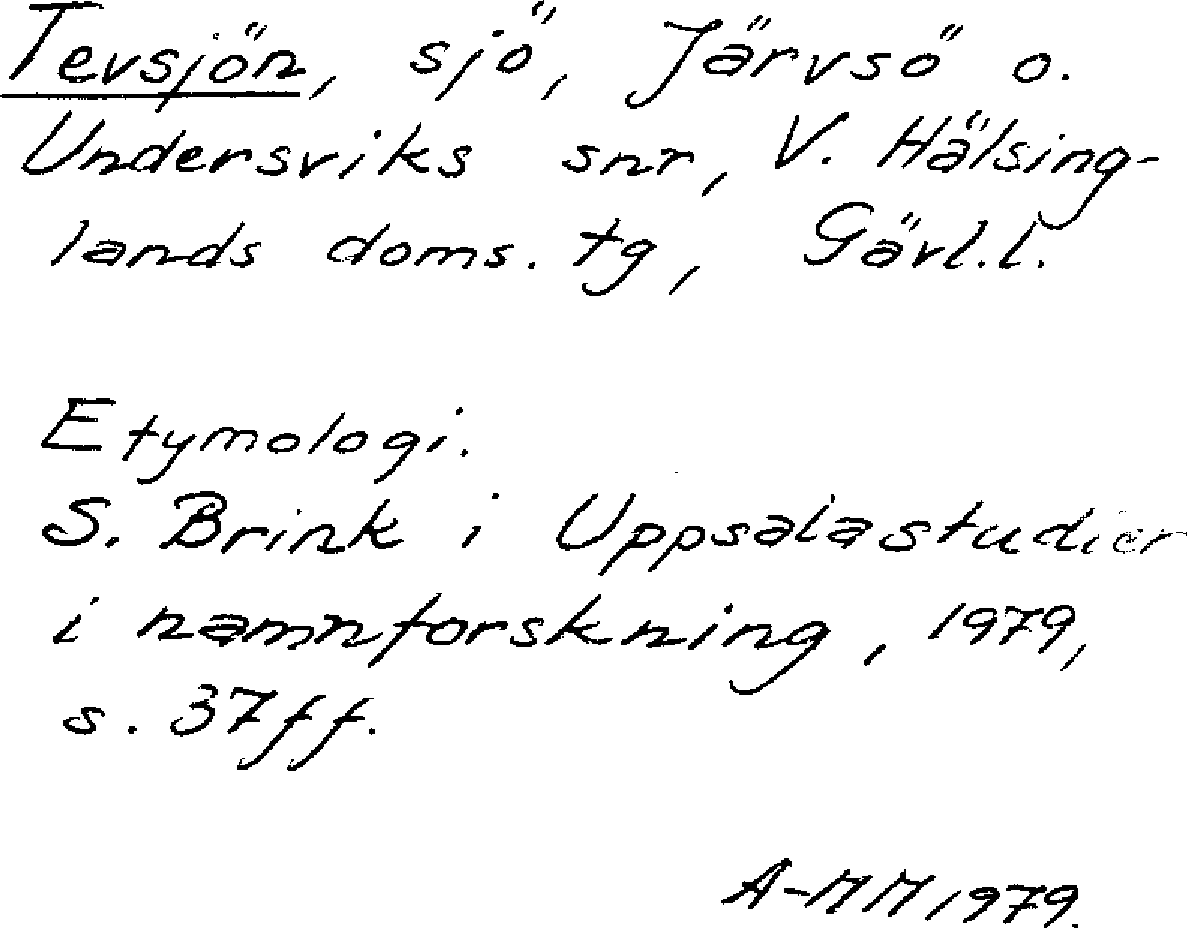 Tevsjön, sjö, Järvsö o.
Undersviks snr, V. Hälsing-
lands doms. tg, Gävl.l.
Etymologi.
S. Brink i Uppsalastudier
i namnforskning, 1979,
s. 37ff.
A-MM 1979.